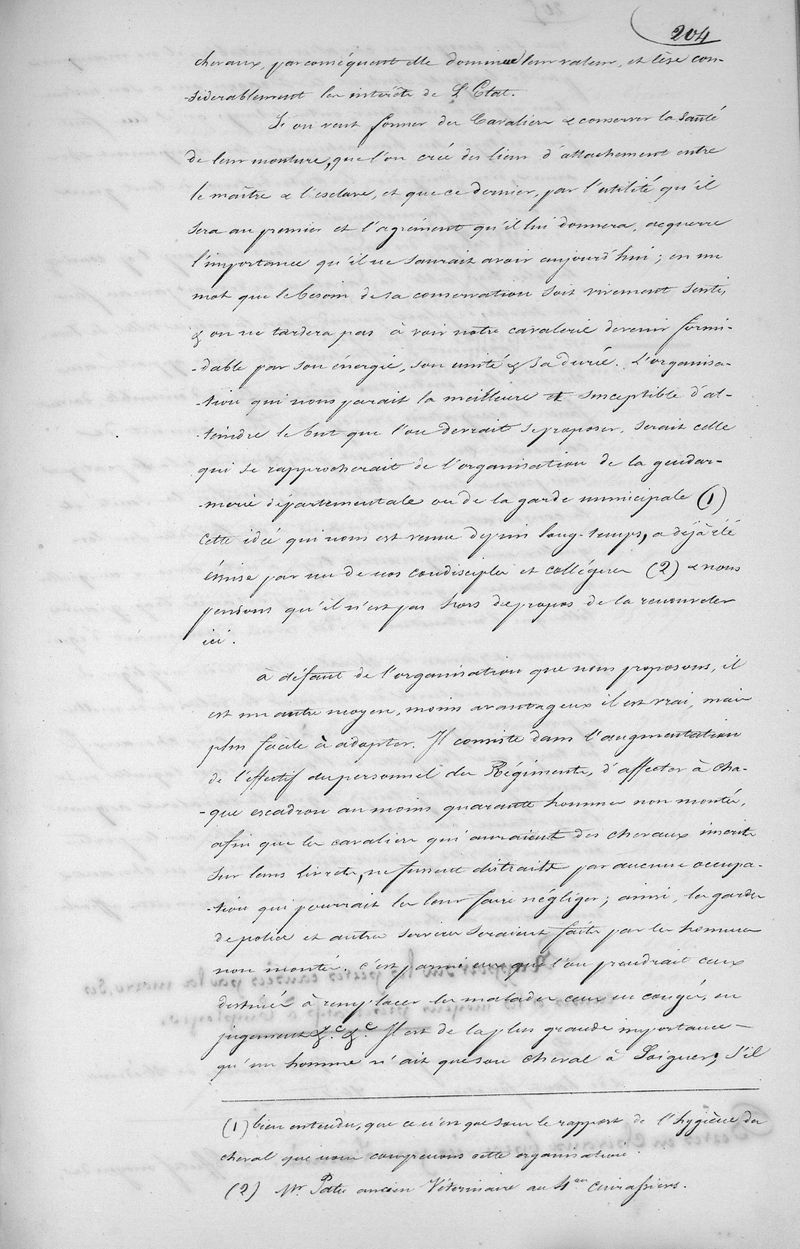 204
chevaux, par conséquent elle diminue leur valeur, et lèse con-
-sidérablement les intérêts de L'Etat.
Si on veut former des Cavaliers & conserver la santé
de leur monture, que l'on crée des liens d'attachement entre
le maître & l'esclave, et que ce dernier, par l'utilité qu'il
sera au premier et l'agrément qu'il lui donnera, acquerre
l'importance qu'il ne saurait avoir aujourd'hui ; en un
mot que le besoin de sa conservation soit vivement senti,
& on ne tardera pas à voir notre cavalerie devenir formi-
-dable par son énergie, son unité & sa durée. L'organisa-
-tion qui nous parait la meilleure et susceptible d'at-
-teindre le but que l'on devrait se proposer, serait celle
qui se rapprocherait de l'organisation de la gendar-
-merie départementale ou de la garde municipale (1)
Cette idée qui nous est venue depuis long-temps, a déjà été
émise par un de nos condisciples et collègues (2) & nous
pensons qu'il n'est pas hors de propos de la renouveler
ici.
à défaut de l'organisation que nous proposons, il
est un autre moyen, moins avantageux il est vrai, mais
plus facile à adopter. Il consiste dans l'augmentation
de l'effectif du personnel des Régiments, d'affecter à cha-
-que escadron au moins quarante hommes non montés,
afin que les cavaliers qui auraient des chevaux inscrits
sur leurs livrets, ne fussent distraits par aucune occupa-
-tion qui pourrait les leur faire négliger ; ainsi, les gardes
de police et autres services seraient faits par les hommes
non montés. c'est parmi eux que l'on prendrait ceux
destinés à remplacer les malades ceux en congés, en
jugement &c &c. Il est de la plus grande importance
qu'un homme n'ait que son cheval à Soigner, S'il
(1) bien entendu, que ce n'est que sous le rapport de l'hygiène du
cheval que nous comprenons cette organisation.
(2) Mr Patu ancien Vétérinaire au 4me cuirassiers.